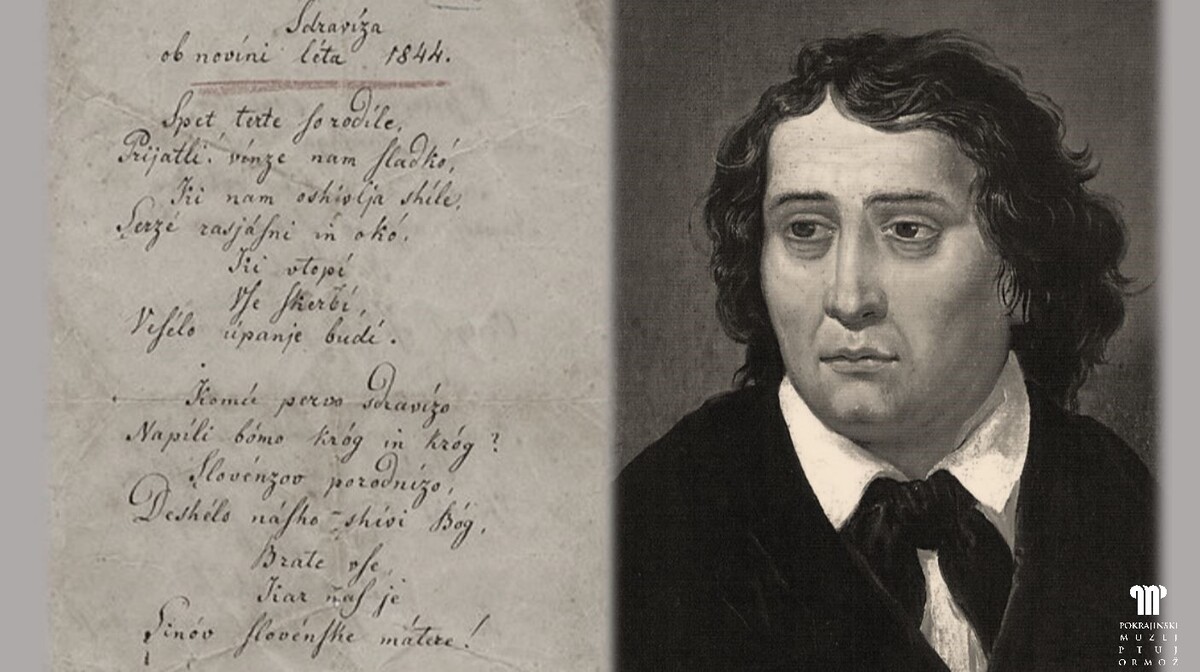 Sdravíza
ob novíni léta 1844.
Spet terte ſo rodíle,
Prijatli! vínze nam ſladkó,
Ki nam oshivlja shíle,
Serzé rasjáſni in okó,
Ki vtopí
Vſe ſkerbí,
Veſélo úpanje budí.
Komú pervo sdravízo
Napíli bómo króg in króg?
Slovénzov porodnízo,
Deshélo náſho – shívi Bóg,
Brate vſe,
Kar naſ je
Sinóv ſlovénſke mátere!
POKRAJINSKI
MUZEJ
PTUJ
ORMOŽ